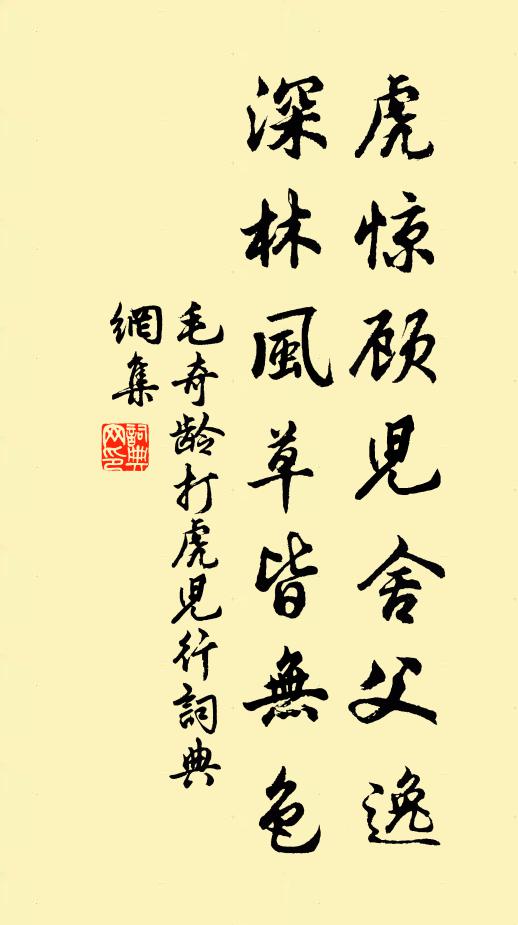 虎惊顾児舍父逸
深林風草皆無色
毛奇齡打虎児行詞典
網集
詞典
网印